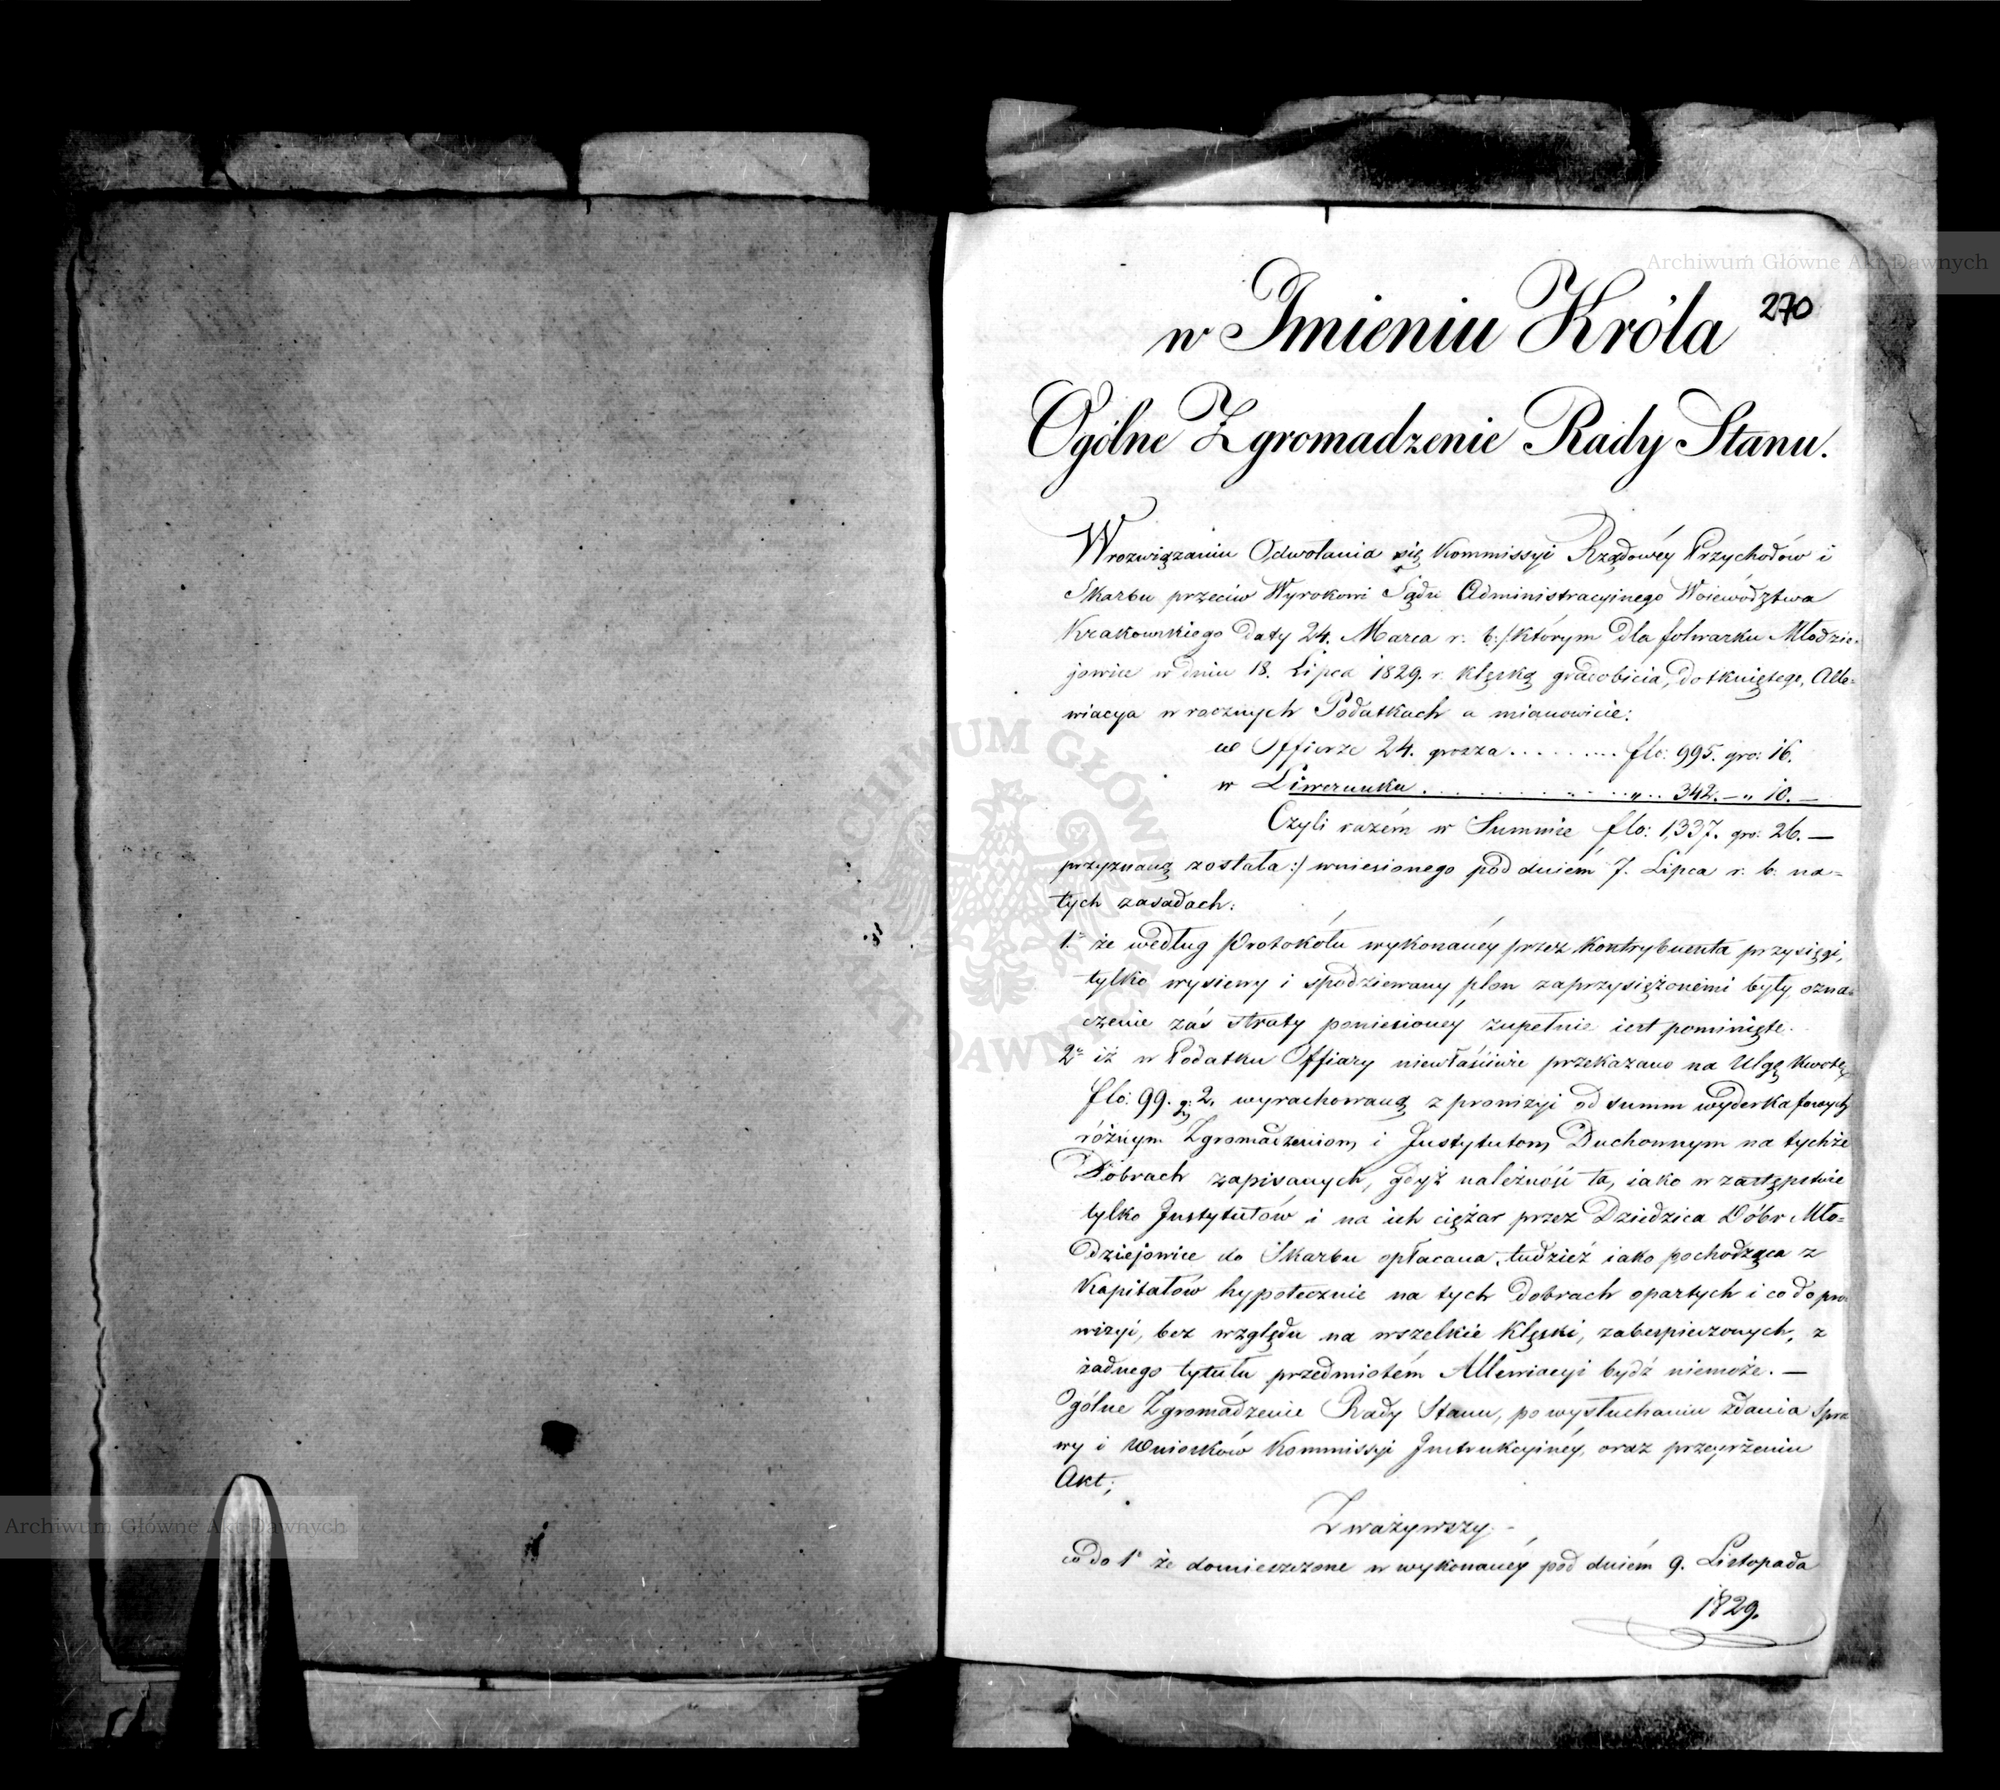 270
w Imieniu Króla
Ogólne Zgromadzenie Rady Stanu.
W rozwiązaniu Odwołania się Kommissyi Rządowéy Przychodów i
Skarbu przeciw Wyrokowi Sądu Administracyinego Woiewództwa
Krakowskiego daty 24. Marca r. b: /: którym dla folwarku Młodzie-
jowice w dniu 18. Lipca 1829. r. klęską gradobicia, dotkniętego, Alle-
wiacya w rocznych Podatkach a mianowicie:
w Offierze 24. grosza . . . . . . . . . flo: 995. gro: 16.
w Liwerunku . . . . . . . . . . . . „ . . 342. — „ 10. —
Czyli razém w Summie flo: 1,337. gro: 26. —
przyznaną została :/ wniesionego pod dniém 7. Lipca r. b. na-
tych zasadach:
1.° że według Protokółu wykonanéy przez Kontrybuenta przysięgi,
tylko wysiewy i spodziewany plon zaprzysiężonémi były, ozna-
czenie zaś straty poniesionéy zupełnie iest pominięte.
2° iż w Podatku Offiary niewłaściwie przekazano na Ulgę Kwotę
flo: 99. g: 2. wyrachowaną z prowizyi od summ wyderkafowych
różnym Zgromadzeniom i Instytutom Duchownym na tychże
Dobrach zapisanych, gdyż należność ta, iako w zastępstwie
tylko Instytutów i na ich ciężar przez Dziedzica Dóbr Mło-
dziejowice do Skarbu opłacana, tudzież iako pochodząca z
Kapitałów hypotecznie na tych dobrach opartych i co do pro-
wizyi, bez względu na wszelkie klęski, zabespieczonych, z
żadnego tytułu przedmiotém Allewiacyi bydź niemoże. —
Ogólne Zgromadzenie Rady Stanu, po wysłuchaniu zdania Spra
wy i Wniosków Kommissyi Instrukcyinéy, oraz przeyrzeniu
Akt;
Zważywszy. -
co do 1° że domieszczone w wykonanéy pod dniém 9. Listopada
1829.
Archiwum Główne Akt Dawnych
Archiwum Główne Akt Dawnych
ARCHIWUM GŁÓWNE AKT DAWNYCH